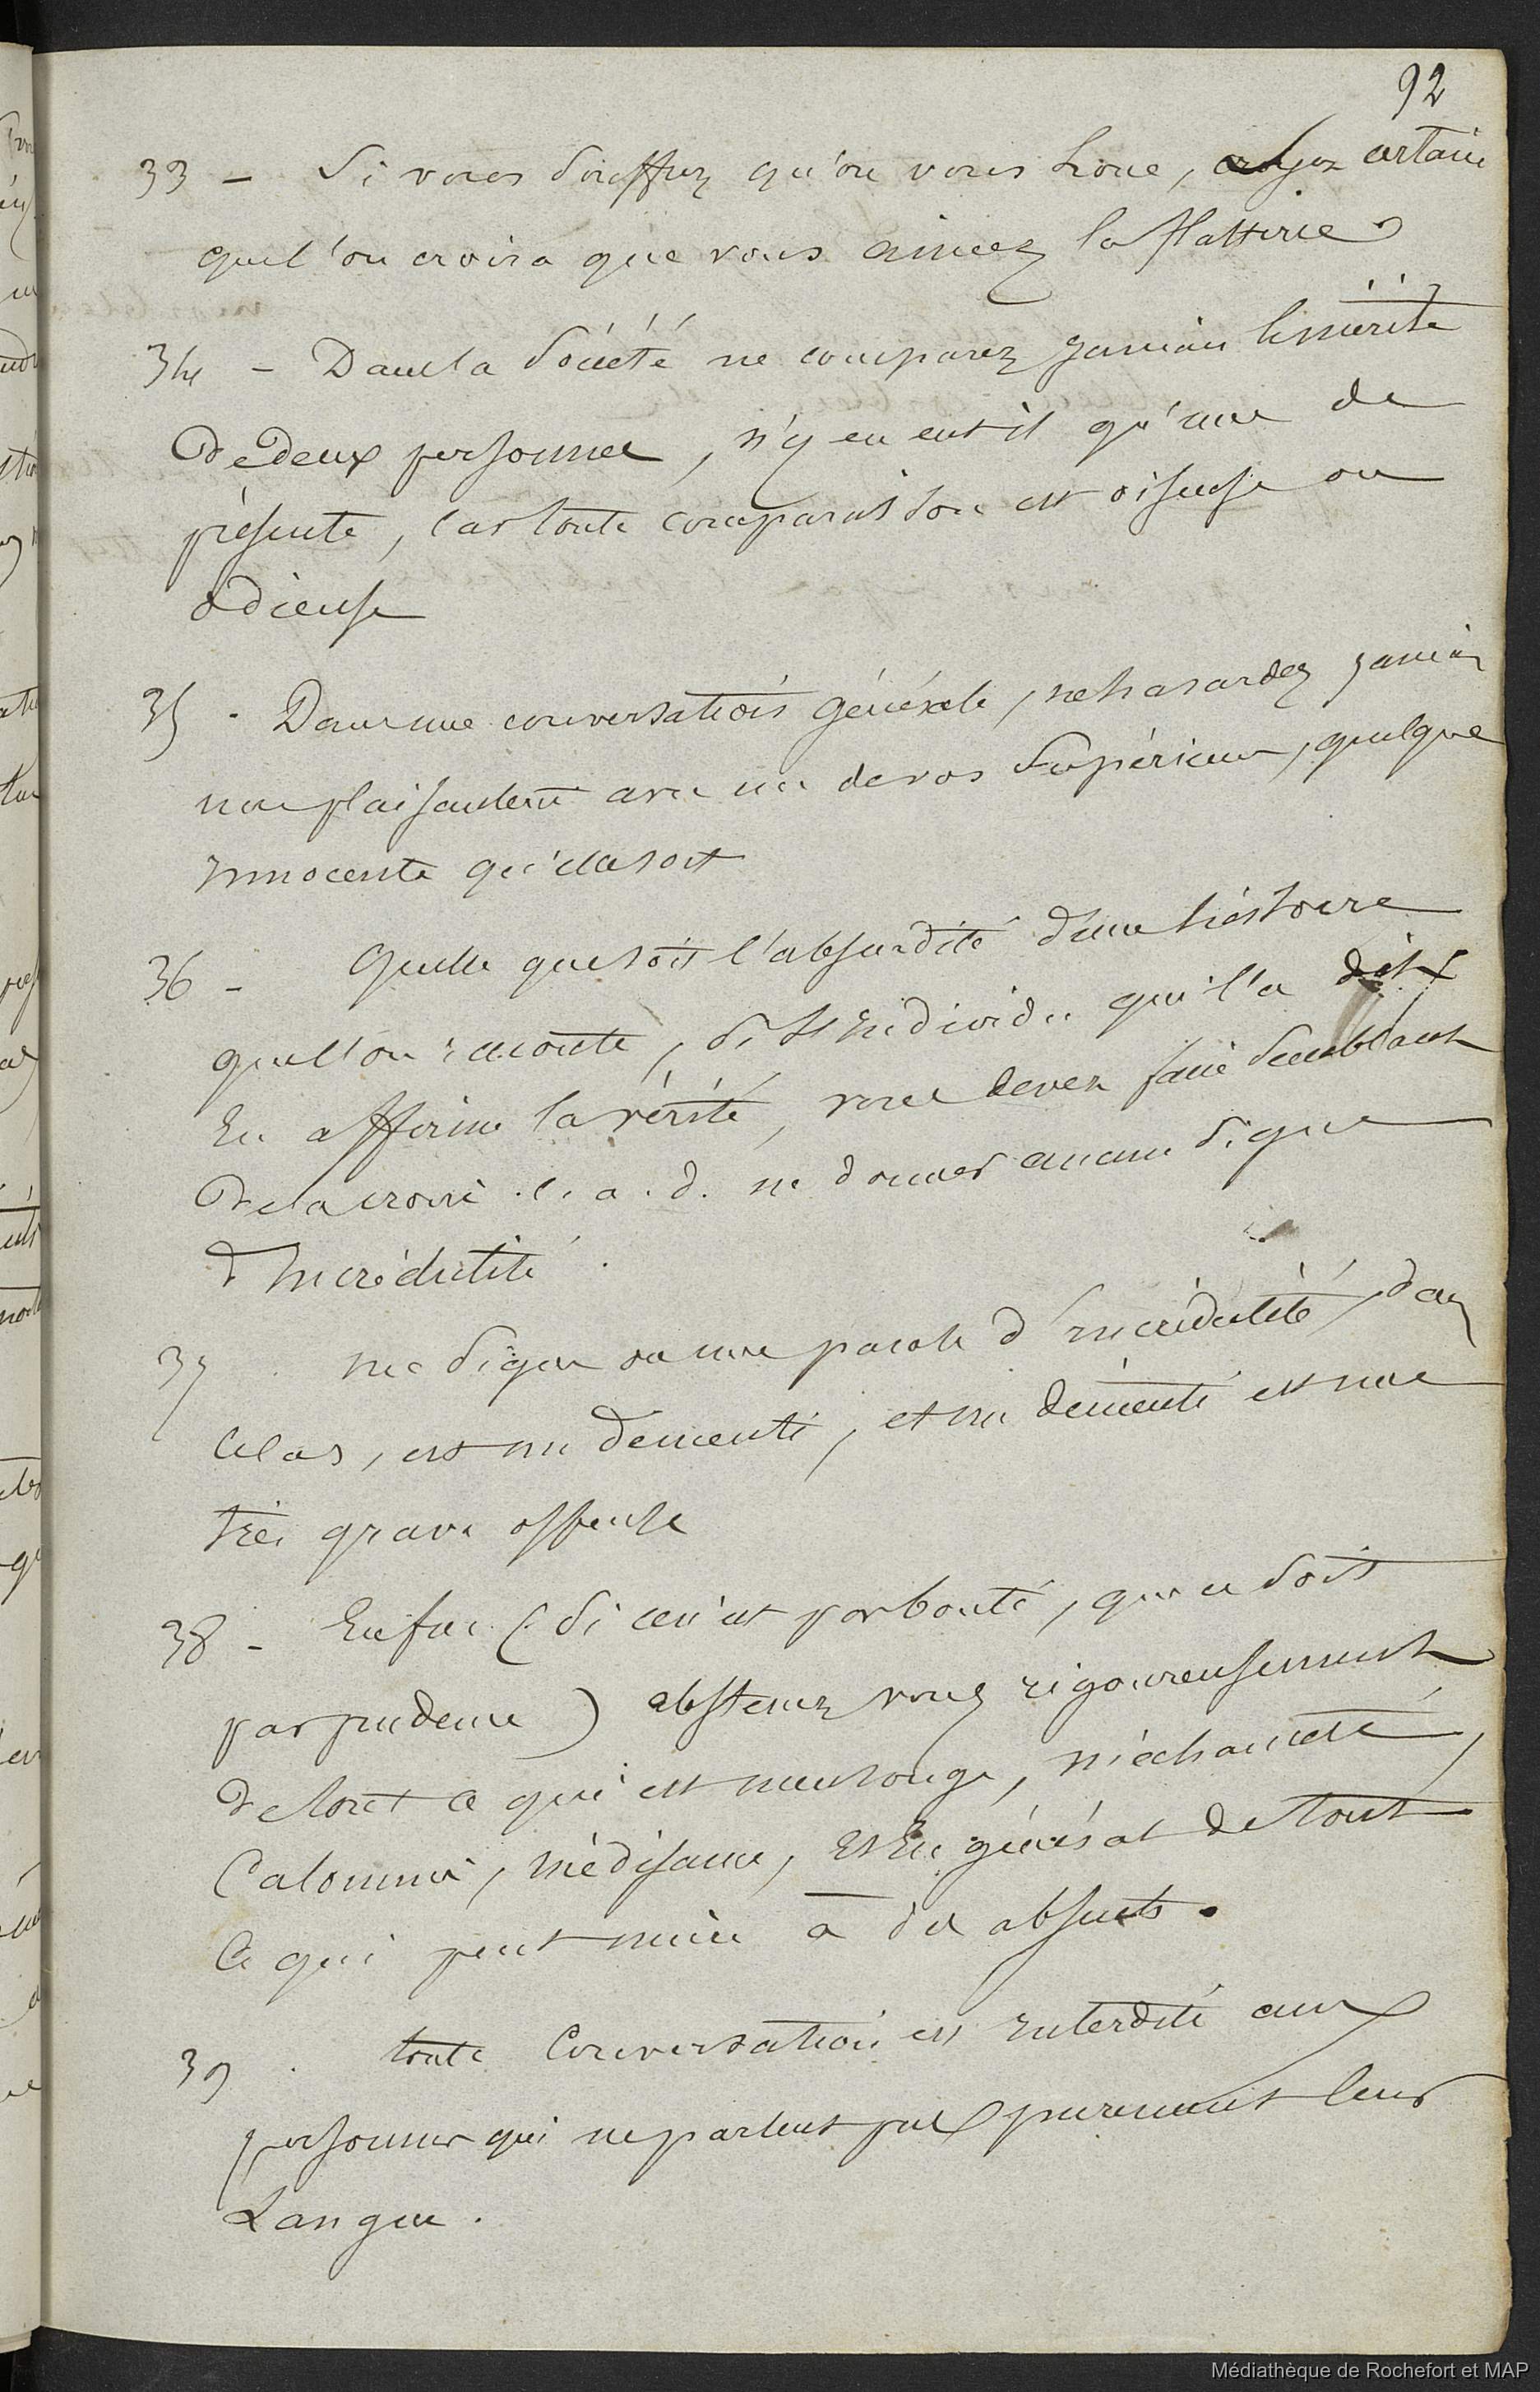 92
33 - Si vous souffrez qu'on vous Loue, soyez certain
que l'on croira que vous aimez la flatterie
34 - Dans la société ne comparez jamais le mérite
de deux personnes, n'y en eut il qu'une de
présente, car toute comparaison est oiseuse ou
odieuse
35 - Dans une conversation générale, ne hasardez jamais
une plaisanterie avec un de vos supérieurs, quelque
innocente qu'elle soit
36 - Quelle que soit l'absurdité d'une histoire
que l'on raconte, si l'individu qui l'a dit
En affirme la vérité, vous devez faire semblant
de la croire c. a. d. ne donner aucun signe
d'incrédulité.
37 . un signe ou une parole d'incrédulité, dans
ce cas, est un démenti, et un démenti est une
très grave offense
38 - Enfin (si ce n'est par bonté, que ce soit
par prudence) abstenez vous rigoureusement
de tout ce qui est mensonge, méchanceté,
Calomnie, médisance, et En général de tout
ce qui peut nuire à des absents.
39 . toute Conversation est interdite aux
personnes qui ne parlent pas purement leur
Langue.
Médiathèque de Rochefort et MAP